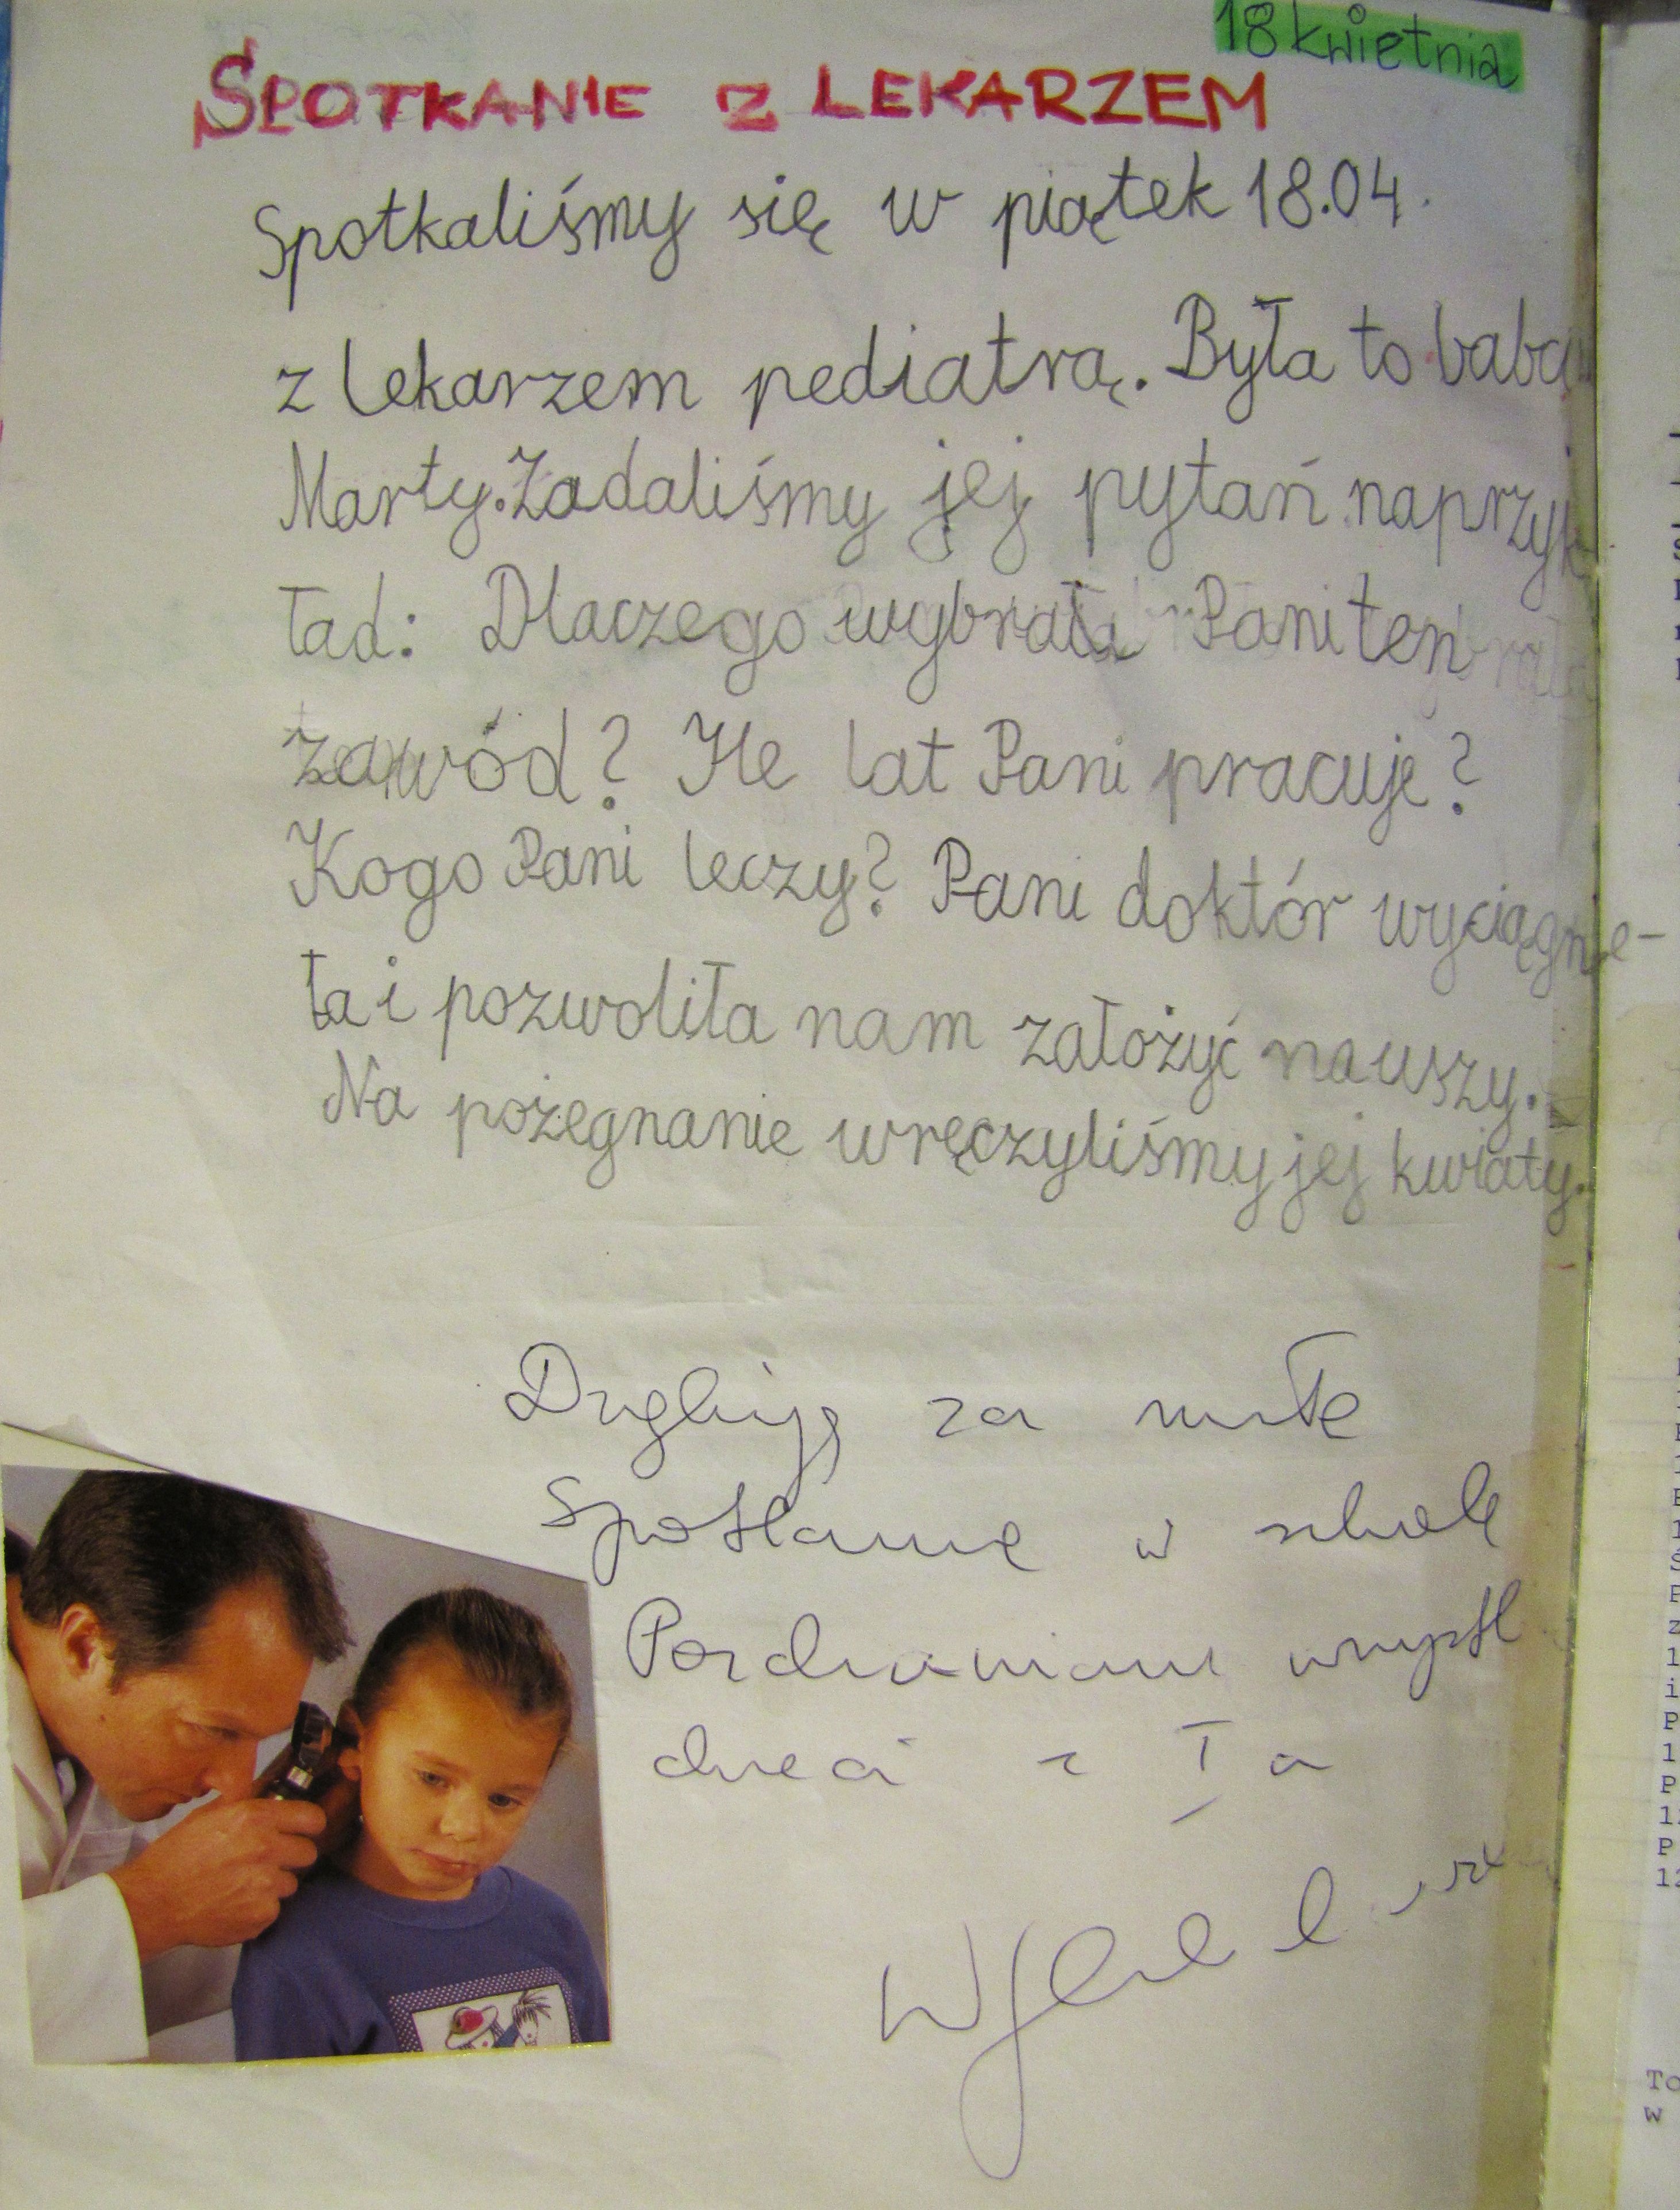 18 kwietnia
SPOTKANIE Z LEKARZEM
Spotkaliśmy się w piątek 18.04.
z lekarzem pediatrą. Była to
Marty. Zadaliśmy jej pytań naprzyk
ład: Dlaczego wybrała Pani ten
zawód? Ile lat Pani pracuje?
Kogo Pani leczy? Pani doktór wyciągnie-
ła i pozwoliła nam założyć na uszy.
Na pożegnanie wręczyliśmy jej kwiaty.
Dziękuję za miłe
spotkanie w szkole
Pozdrawiam wszystk
dzieci z I a
To
w